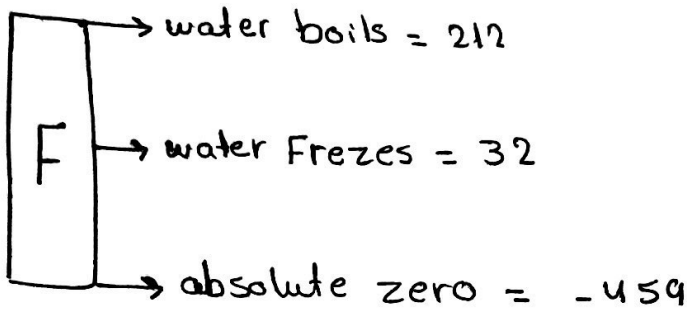 water boils = 212
F
water Frezes = 32
absolute zero = -459